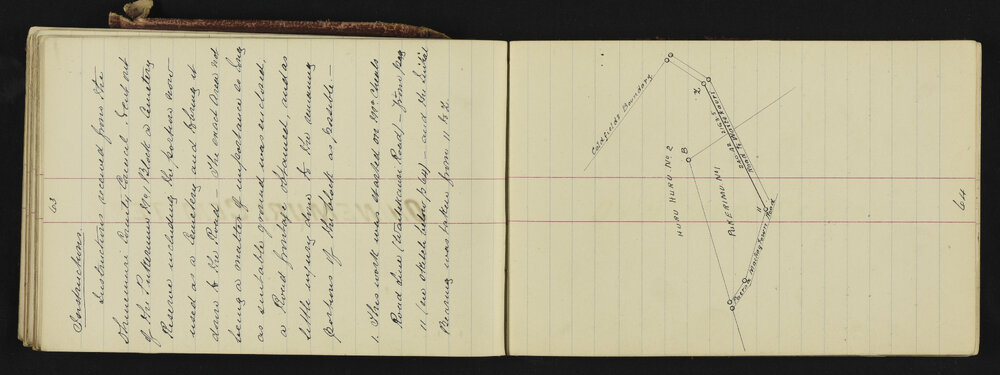 63
Instructions.
Instructions received from the
Ohinemuri County Council. Lay out
of the Pukerimu No 1 Block a Cemetery
Reserve including the portion now
used as a Cemetery and bring it
down to the Road – The exact area not
being a matter of importance so long
as suitable ground was enclosed,
a Road frontage obtained, and as
little injury done to the remaining
portions of the block as possible. –
1. This work was started on Mr
Road Line (Waitekauri Road) – from peg
11 (see sketch below) – and the Initial
Bearing was taken from 11 to Z.
Goldfields Boundary
Z
B
HURU HURU No 2
PUKERIMU No 1
11
Road
64